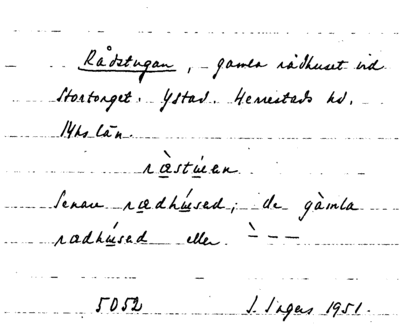 Rådstugan, gamla rådhuset vid
Stortorget. Ystad. Herrestads hd.
Mhs län.
ræ̀stúen
Senare rædhúsed; de gàmla
rædhúsed eller ̀ – – –
5052 I. Ingers 1951.